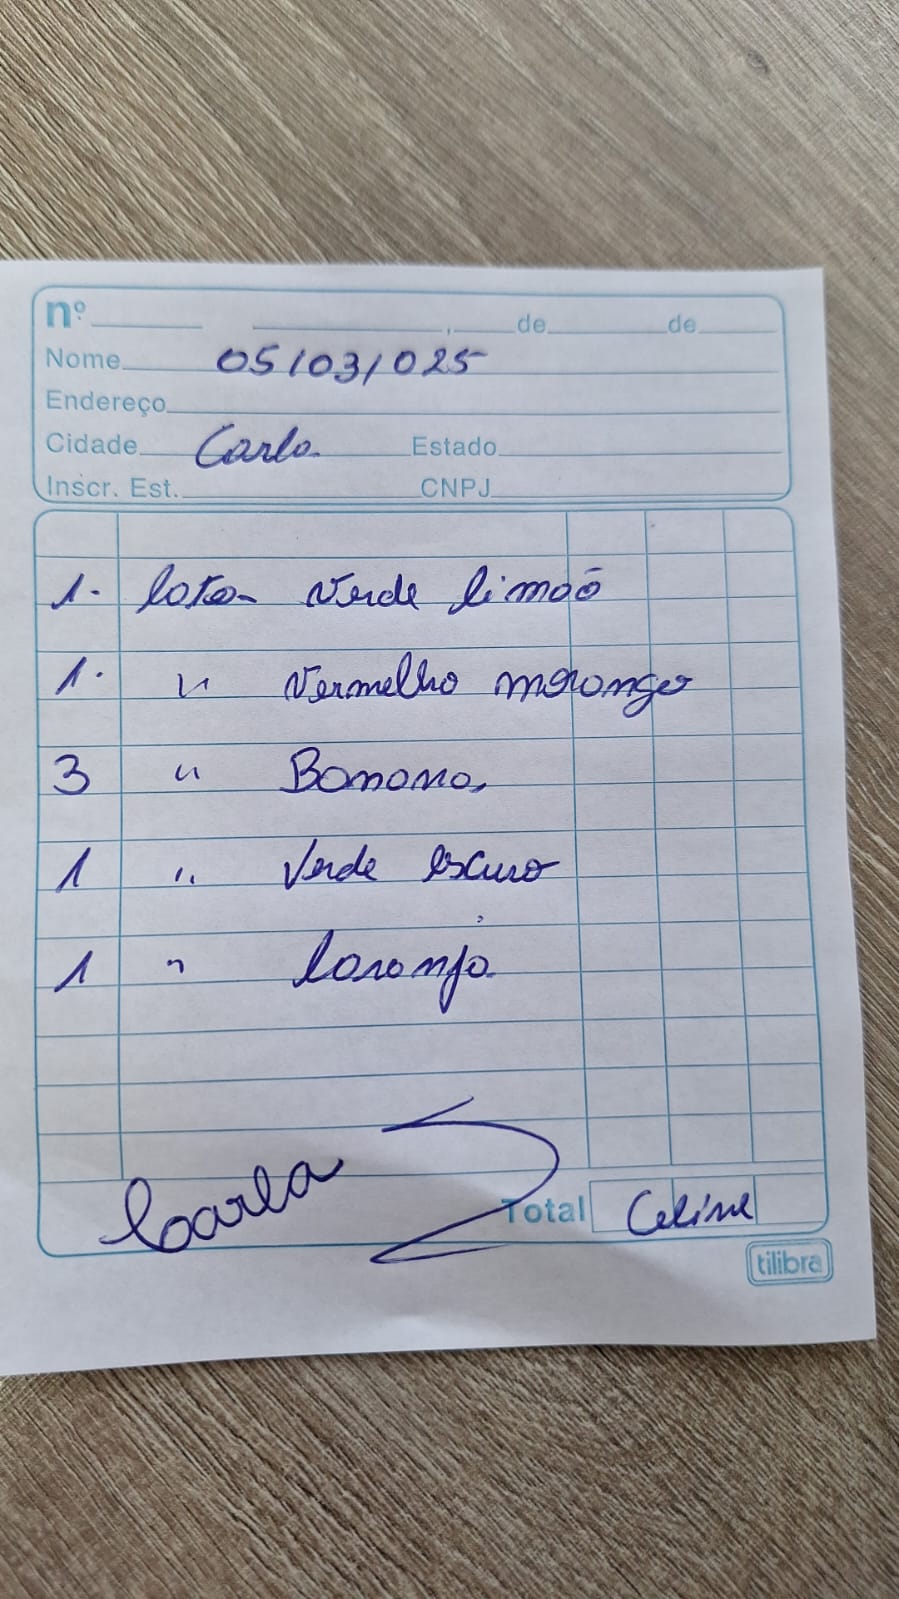 nº ____ ____, de ____ de ____
Nome 05/03/025
Endereço
Cidade Carla Estado
Inscr. Est. CNPJ
1. lata verde limão
1. " Vermelho morango
3 " Banana
1 " Verde escuro
1 " laranja
Carla
Total Celine
tilibra